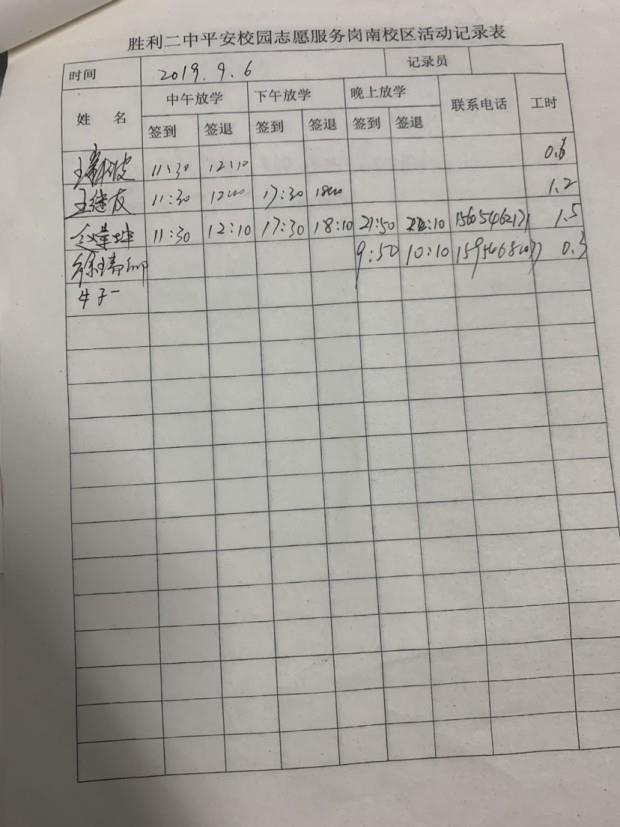 胜利二中平安校园志愿服务岗南校区活动记录表
时间 2019.9.6 记录员
姓 名 中午放学 下午放学 晚上放学 联系电话 工时
签到 签退 签到 签退 签到 签退
11:30 12:10 0.6
11:30 17:30 1.2
11:30 12:10 17:30 18:10 21:50 22:10 1.5
9:50 10:10 0.3